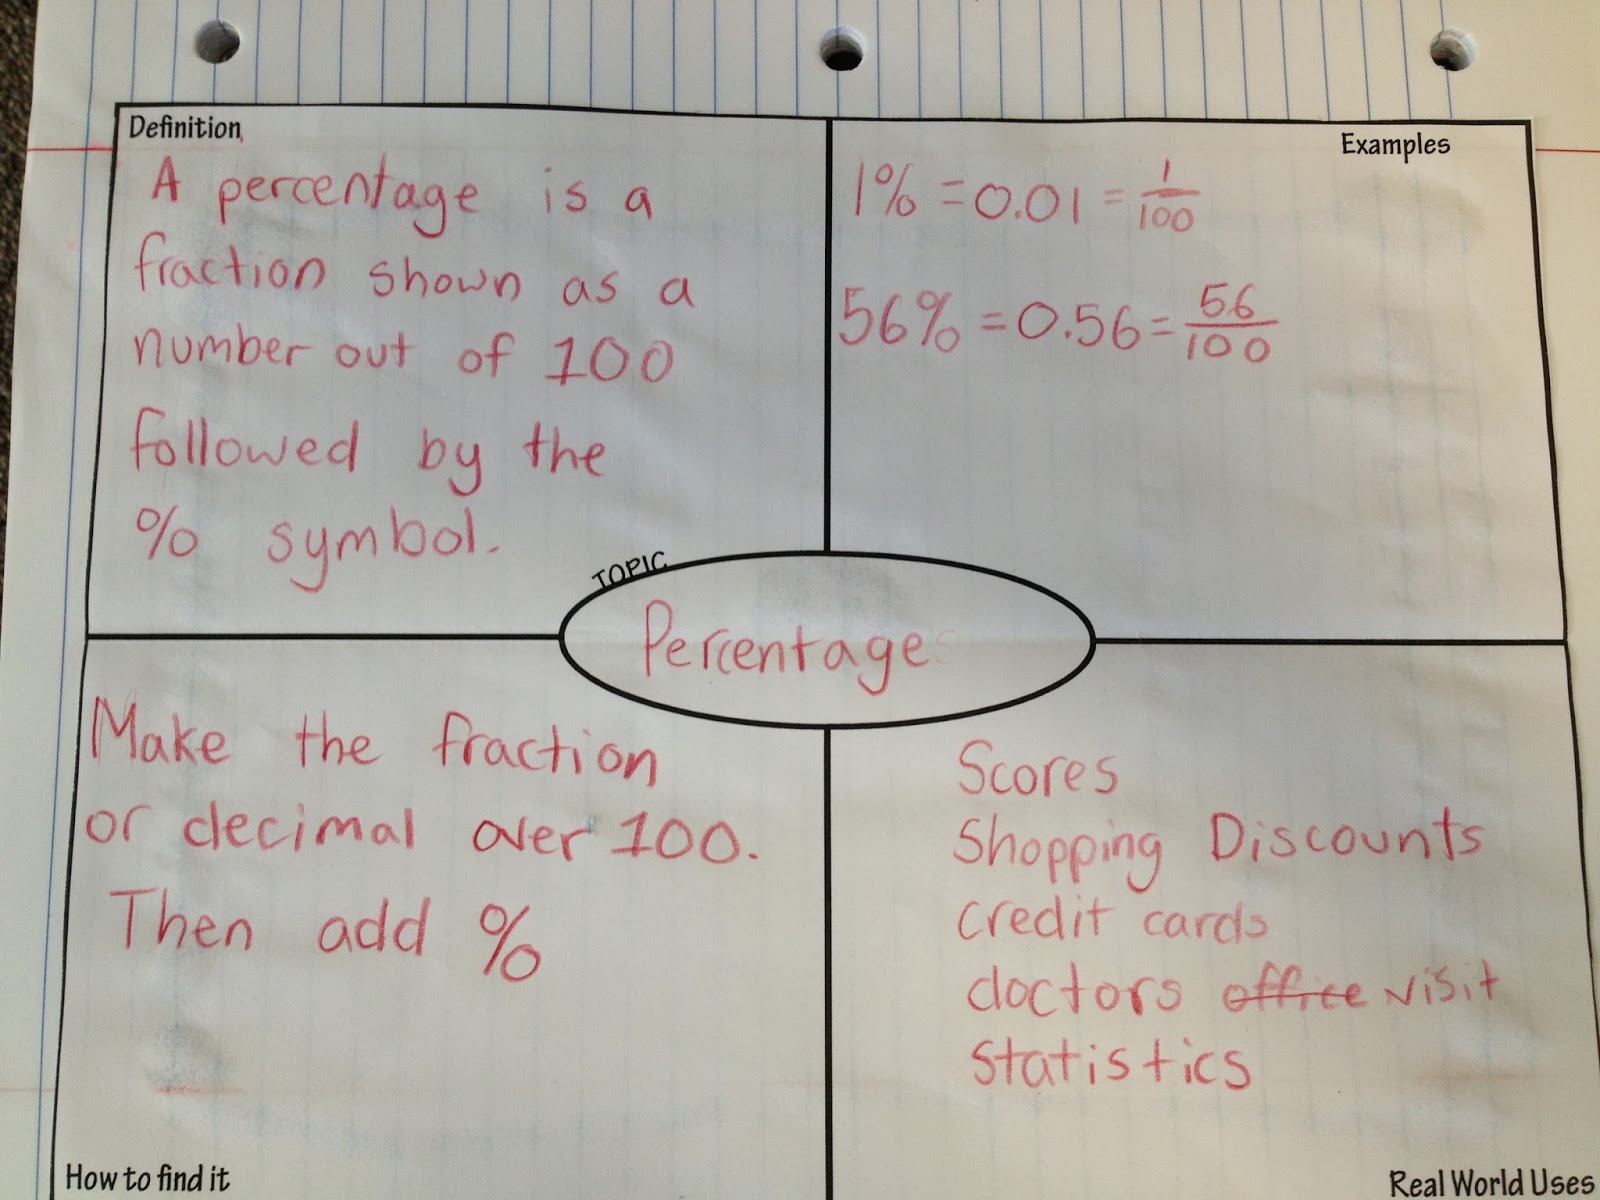 Definition
A percentage is a
fraction shown as a
number out of 100
followed by the
% symbol.
Examples
1% = 0.01 = 1/100
56% = 0.56 = 56/100
TOPIC
Percentages
Make the fraction
or decimal over 100.
Then add %
How to find it
Scores
Shopping Discounts
credit cards
doctors office visit
statistics
Real World Uses